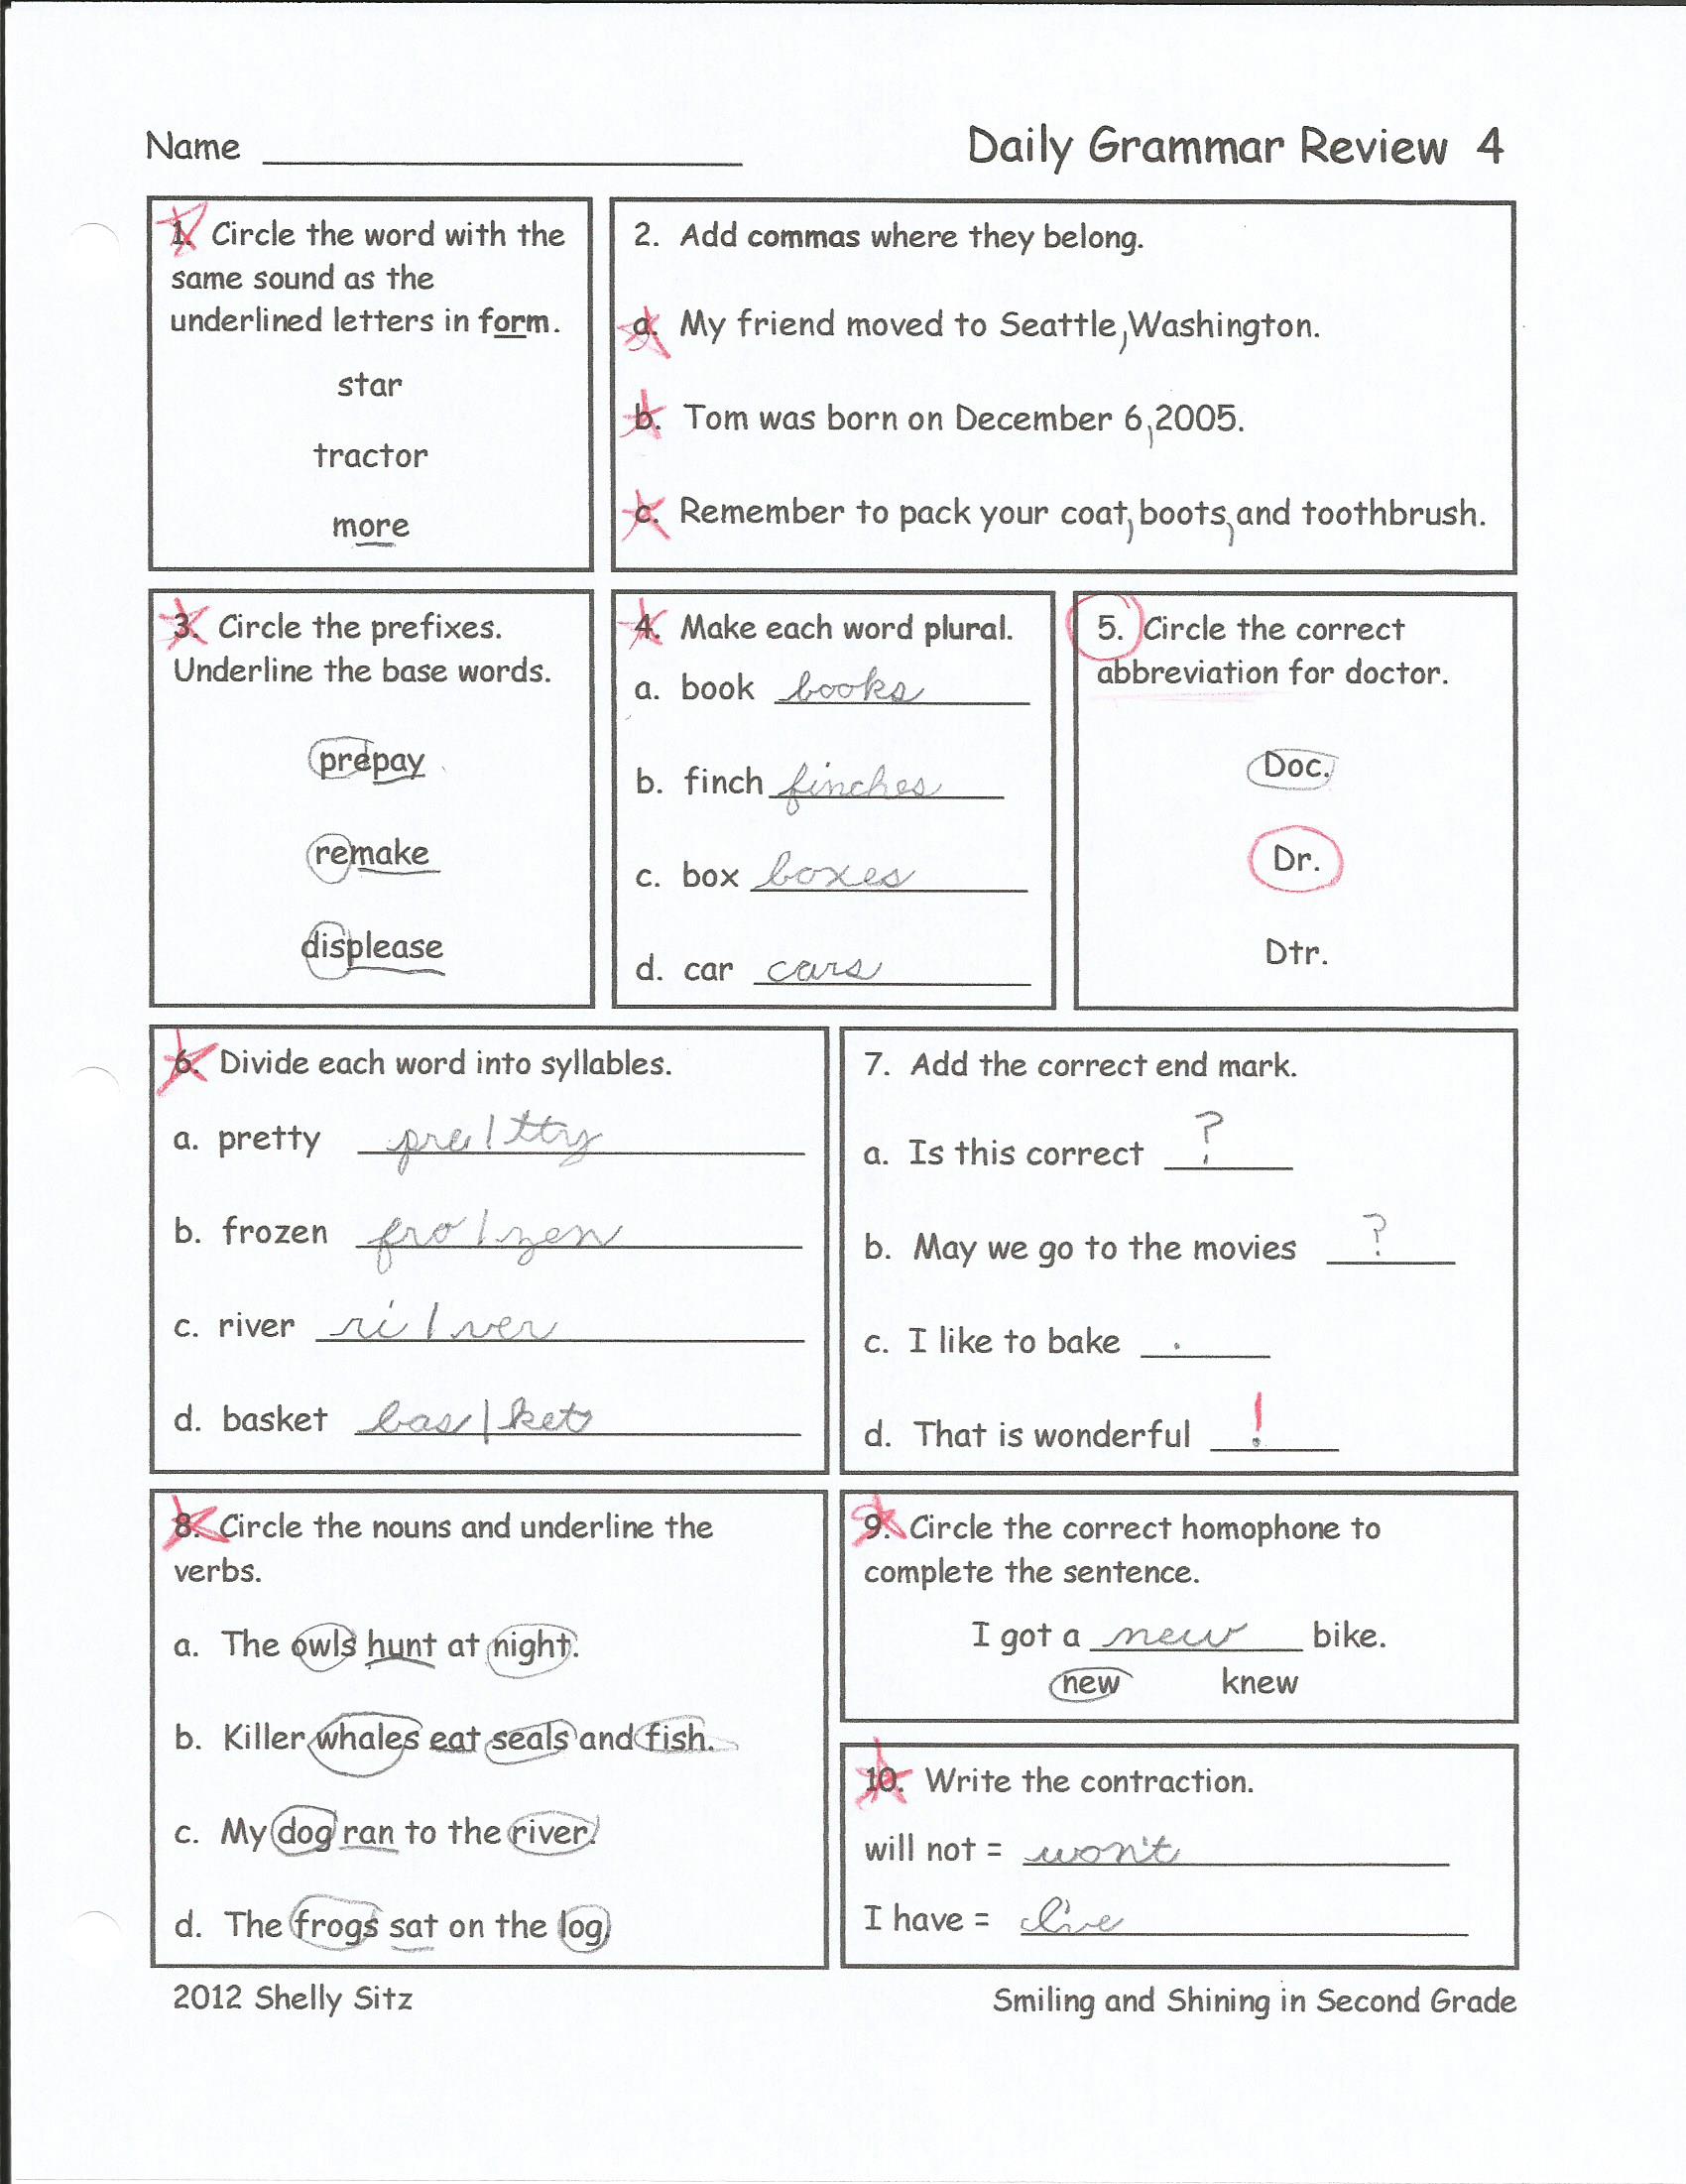 Name
Daily Grammar Review 4
1. Circle the word with the
same sound as the
underlined letters in form.
star
tractor
more
2. Add commas where they belong.
a. My friend moved to Seattle, Washington.
b. Tom was born on December 6, 2005.
c. Remember to pack your coat, boots, and toothbrush.
3. Circle the prefixes.
Underline the base words.
prepay
remake
displease
4. Make each word plural.
a. book books
b. finch finches
c. box boxes
d. car cars
5. Circle the correct
abbreviation for doctor.
Doc.
Dr.
Dtr.
6. Divide each word into syllables.
a. pretty pre/tty
b. frozen fro/zen
c. river ri/ver
d. basket bas/ket
7. Add the correct end mark.
a. Is this correct ?
b. May we go to the movies ?
c. I like to bake .
d. That is wonderful !
8. Circle the nouns and underline the
verbs.
a. The owls hunt at night.
b. Killer whales eat seals and fish.
c. My dog ran to the river.
d. The frogs sat on the log.
9. Circle the correct homophone to
complete the sentence.
I got a new bike.
new knew
10. Write the contraction.
will not = won't
I have = I've
2012 Shelly Sitz
Smiling and Shining in Second Grade